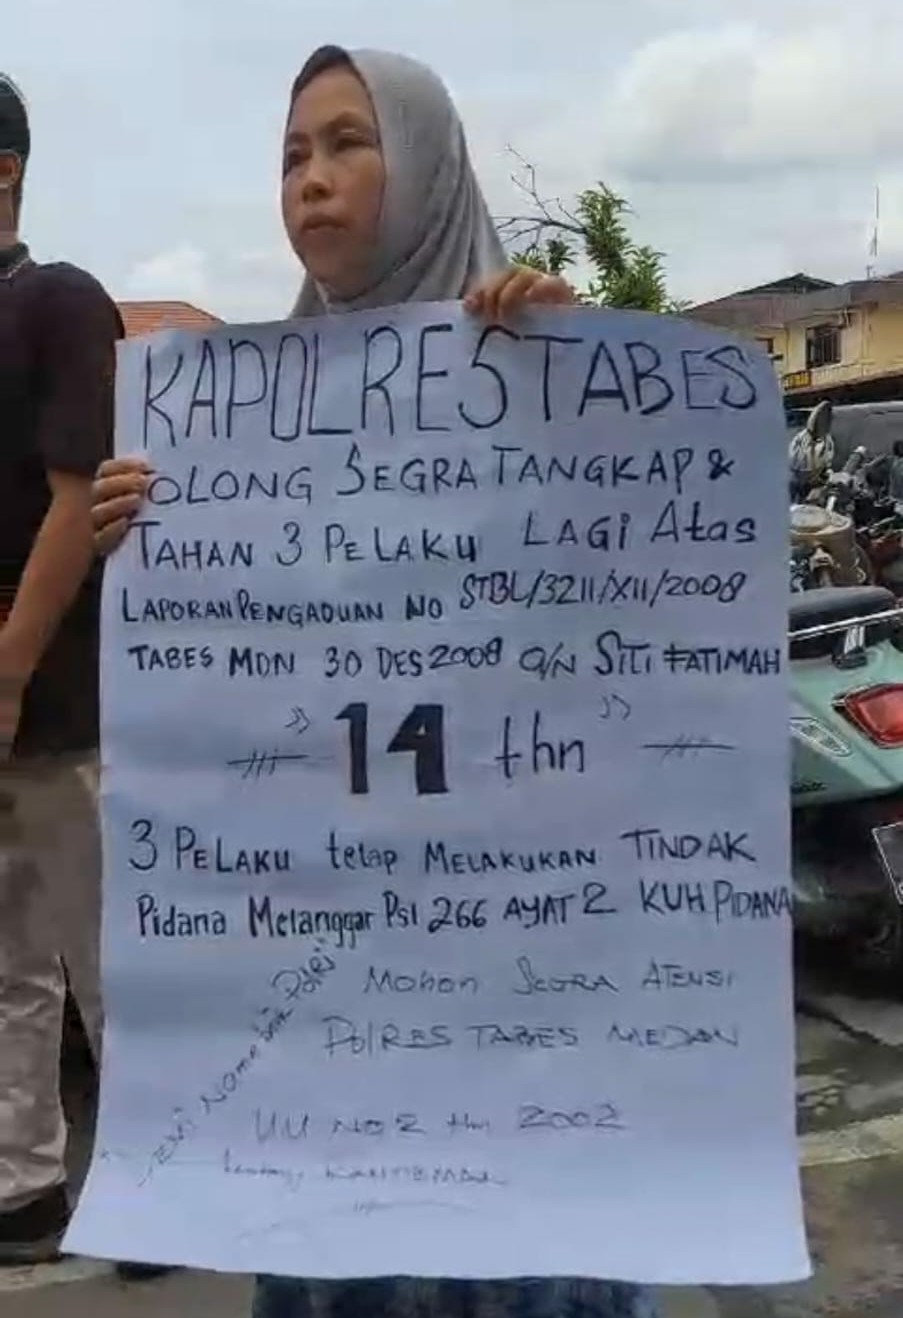 KAPOLRESTABES
TOLONG SEGRA TANGKAP &
TAHAN 3 PELAKU LAGI Atas
LAPORAN PENGADUAN NO STBL/3211/XII/2008
TABES MDN 30 DES 2008 O/N SITI FATIMAH
" 14 thn "
3 PELAKU tetap MELAKUKAN TINDAK
Pidana Melanggar Psl 266 AYAT 2 KUH PIDANA
Mohon SEGRA ATENSI
POLRES TABES MEDAN
DEMI NAMA baik POLRI
UU NO 2 thn 2002
tentang